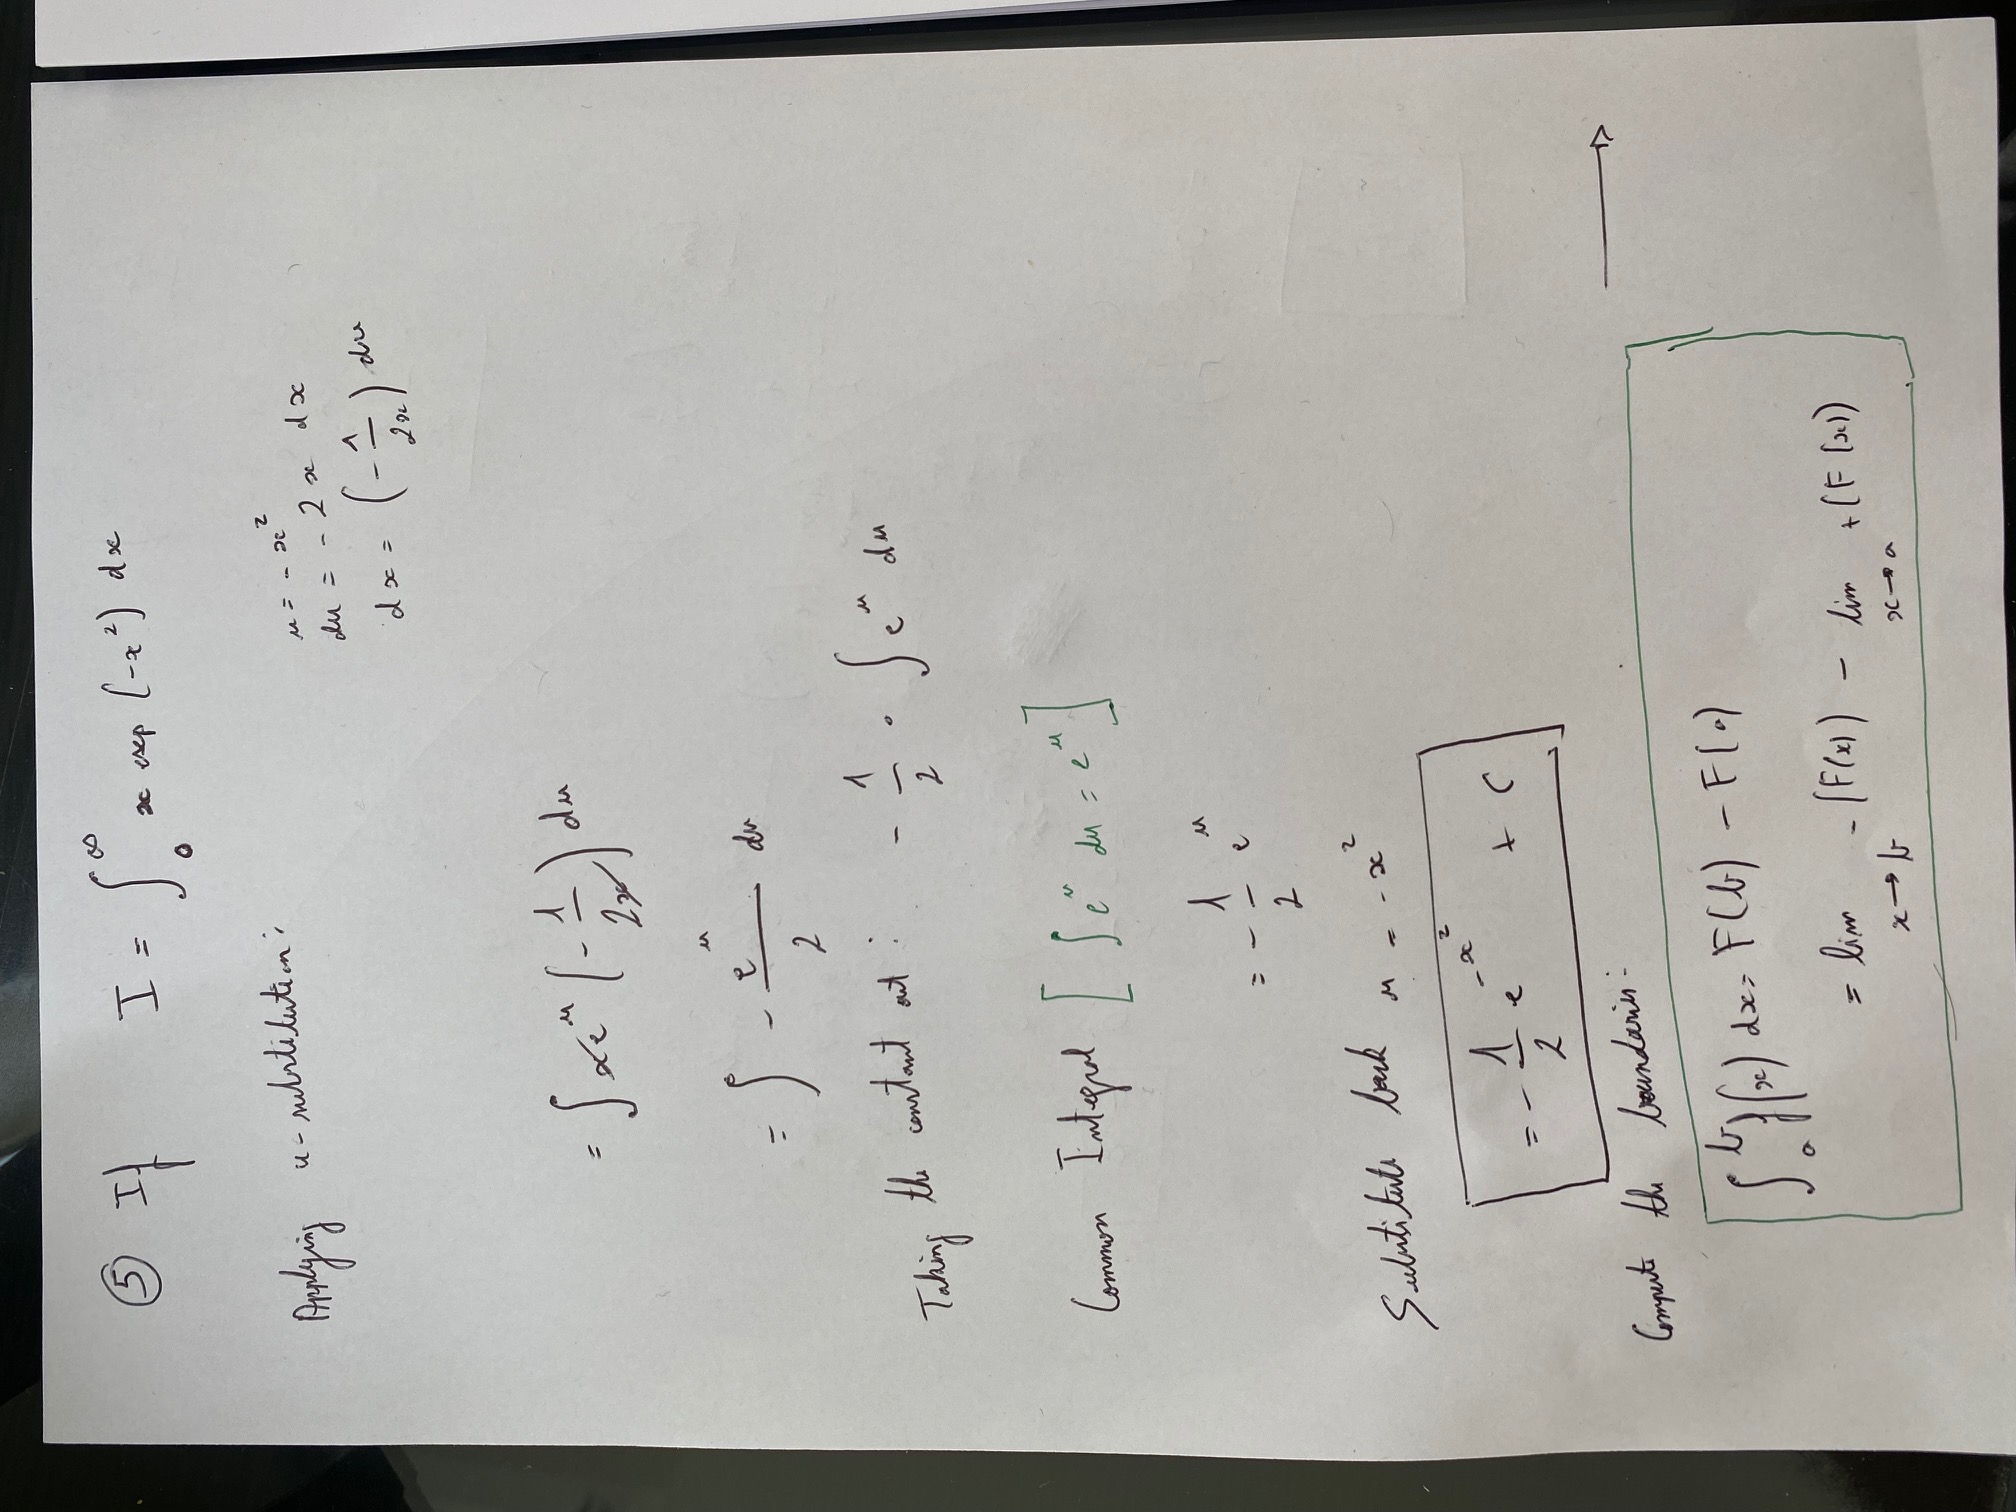 ⑤ If I = ∫₀^∞ x exp (-x²) dx
Applying u-substitution:
u = -x²
du = -2x dx
dx = (-1/2x) du
= ∫ xe^u (-1/2x) du
= ∫ - e^u/2 du
Taking the constant out: -1/2 · ∫ e^u du
Common Integral [∫ e^u du = e^u]
= -1/2 e^u
Substitute back u = -x²
= -1/2 e^-x² + C
Compute the boundaries:
∫ₐ^b f(x) dx = F(b) - F(a)
= lim x→b -(F(x)) - lim x→a +(F(x))